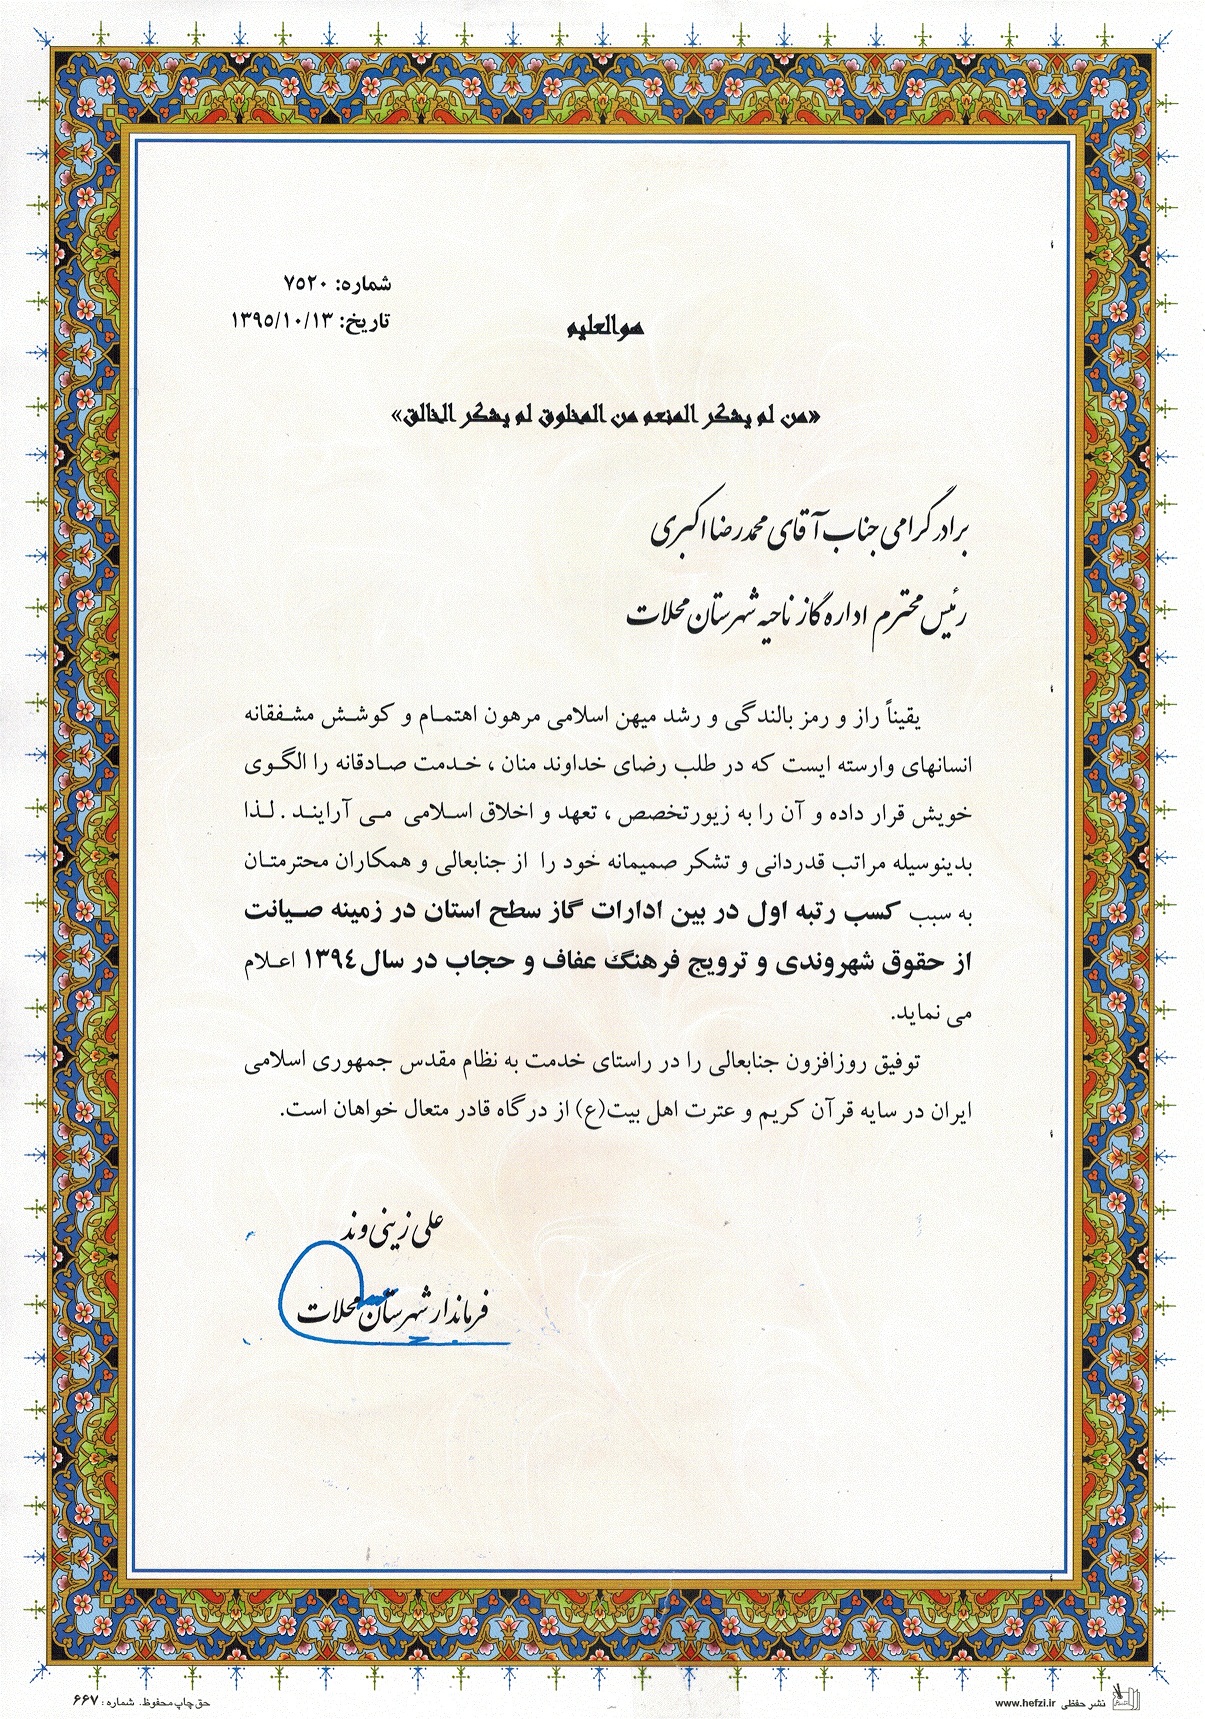 شماره: ۷۵۲۰
تاریخ: ۱۳۹۵/۱۰/۱۳
هوالعلیم
«من لم یشکر المنعم من المخلوق لم یشکر الخالق»
برادر گرامی جناب آقای محمدرضا اکبری
رئیس محترم اداره گاز ناحیه شهرستان محلات
یقیناً راز و رمز بالندگی و رشد میهن اسلامی مرهون اهتمام و کوشش مشفقانه
انسانهای وارسته ایست که در طلب رضای خداوند منان ، خدمت صادقانه را الگوی
خویش قرار داده و آن را به زیورتخصص ، تعهد و اخلاق اسلامی می آرایند . لذا
بدینوسیله مراتب قدردانی و تشکر صمیمانه خود را از جنابعالی و همکاران محترمتان
به سبب کسب رتبه اول در بین ادارات گاز سطح استان در زمینه صیانت
از حقوق شهروندی و ترویج فرهنگ عفاف و حجاب در سال ۱۳۹٤ اعلام
می نماید.
توفیق روزافزون جنابعالی را در راستای خدمت به نظام مقدس جمهوری اسلامی
ایران در سایه قرآن کریم و عترت اهل بیت(ع) از درگاه قادر متعال خواهان است.
علی زینی وند
فرماندار شهرستان محلات
نشر حفظی www.hefzi.ir
حق چاپ محفوظ. شماره : ۶۶۷